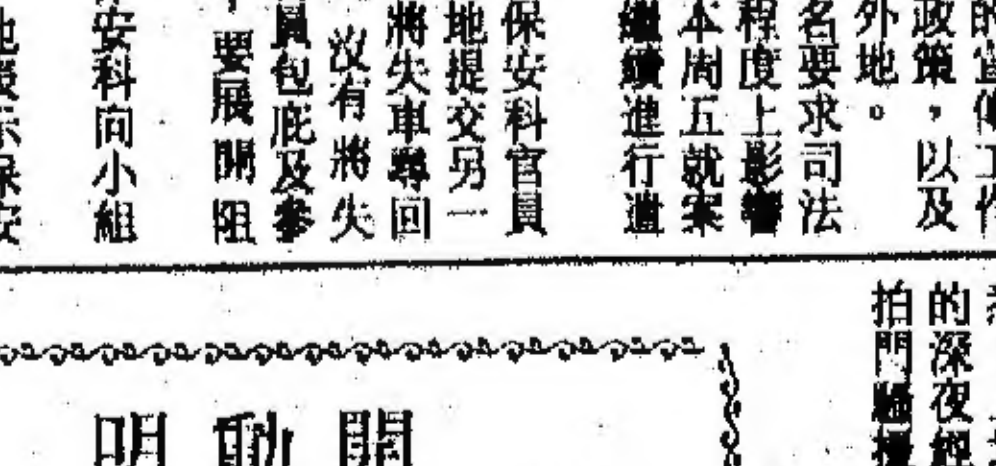 的宣傳工作
政策，以及
外地。
名要求司法
程度上影響
本周五就案
繼續進行遣
保安科官員
地提交另一
將失車尋回
沒有將失
員包庇及參
要展開阻
安科向小組
地表示保安
的深夜經
拍門騷擾